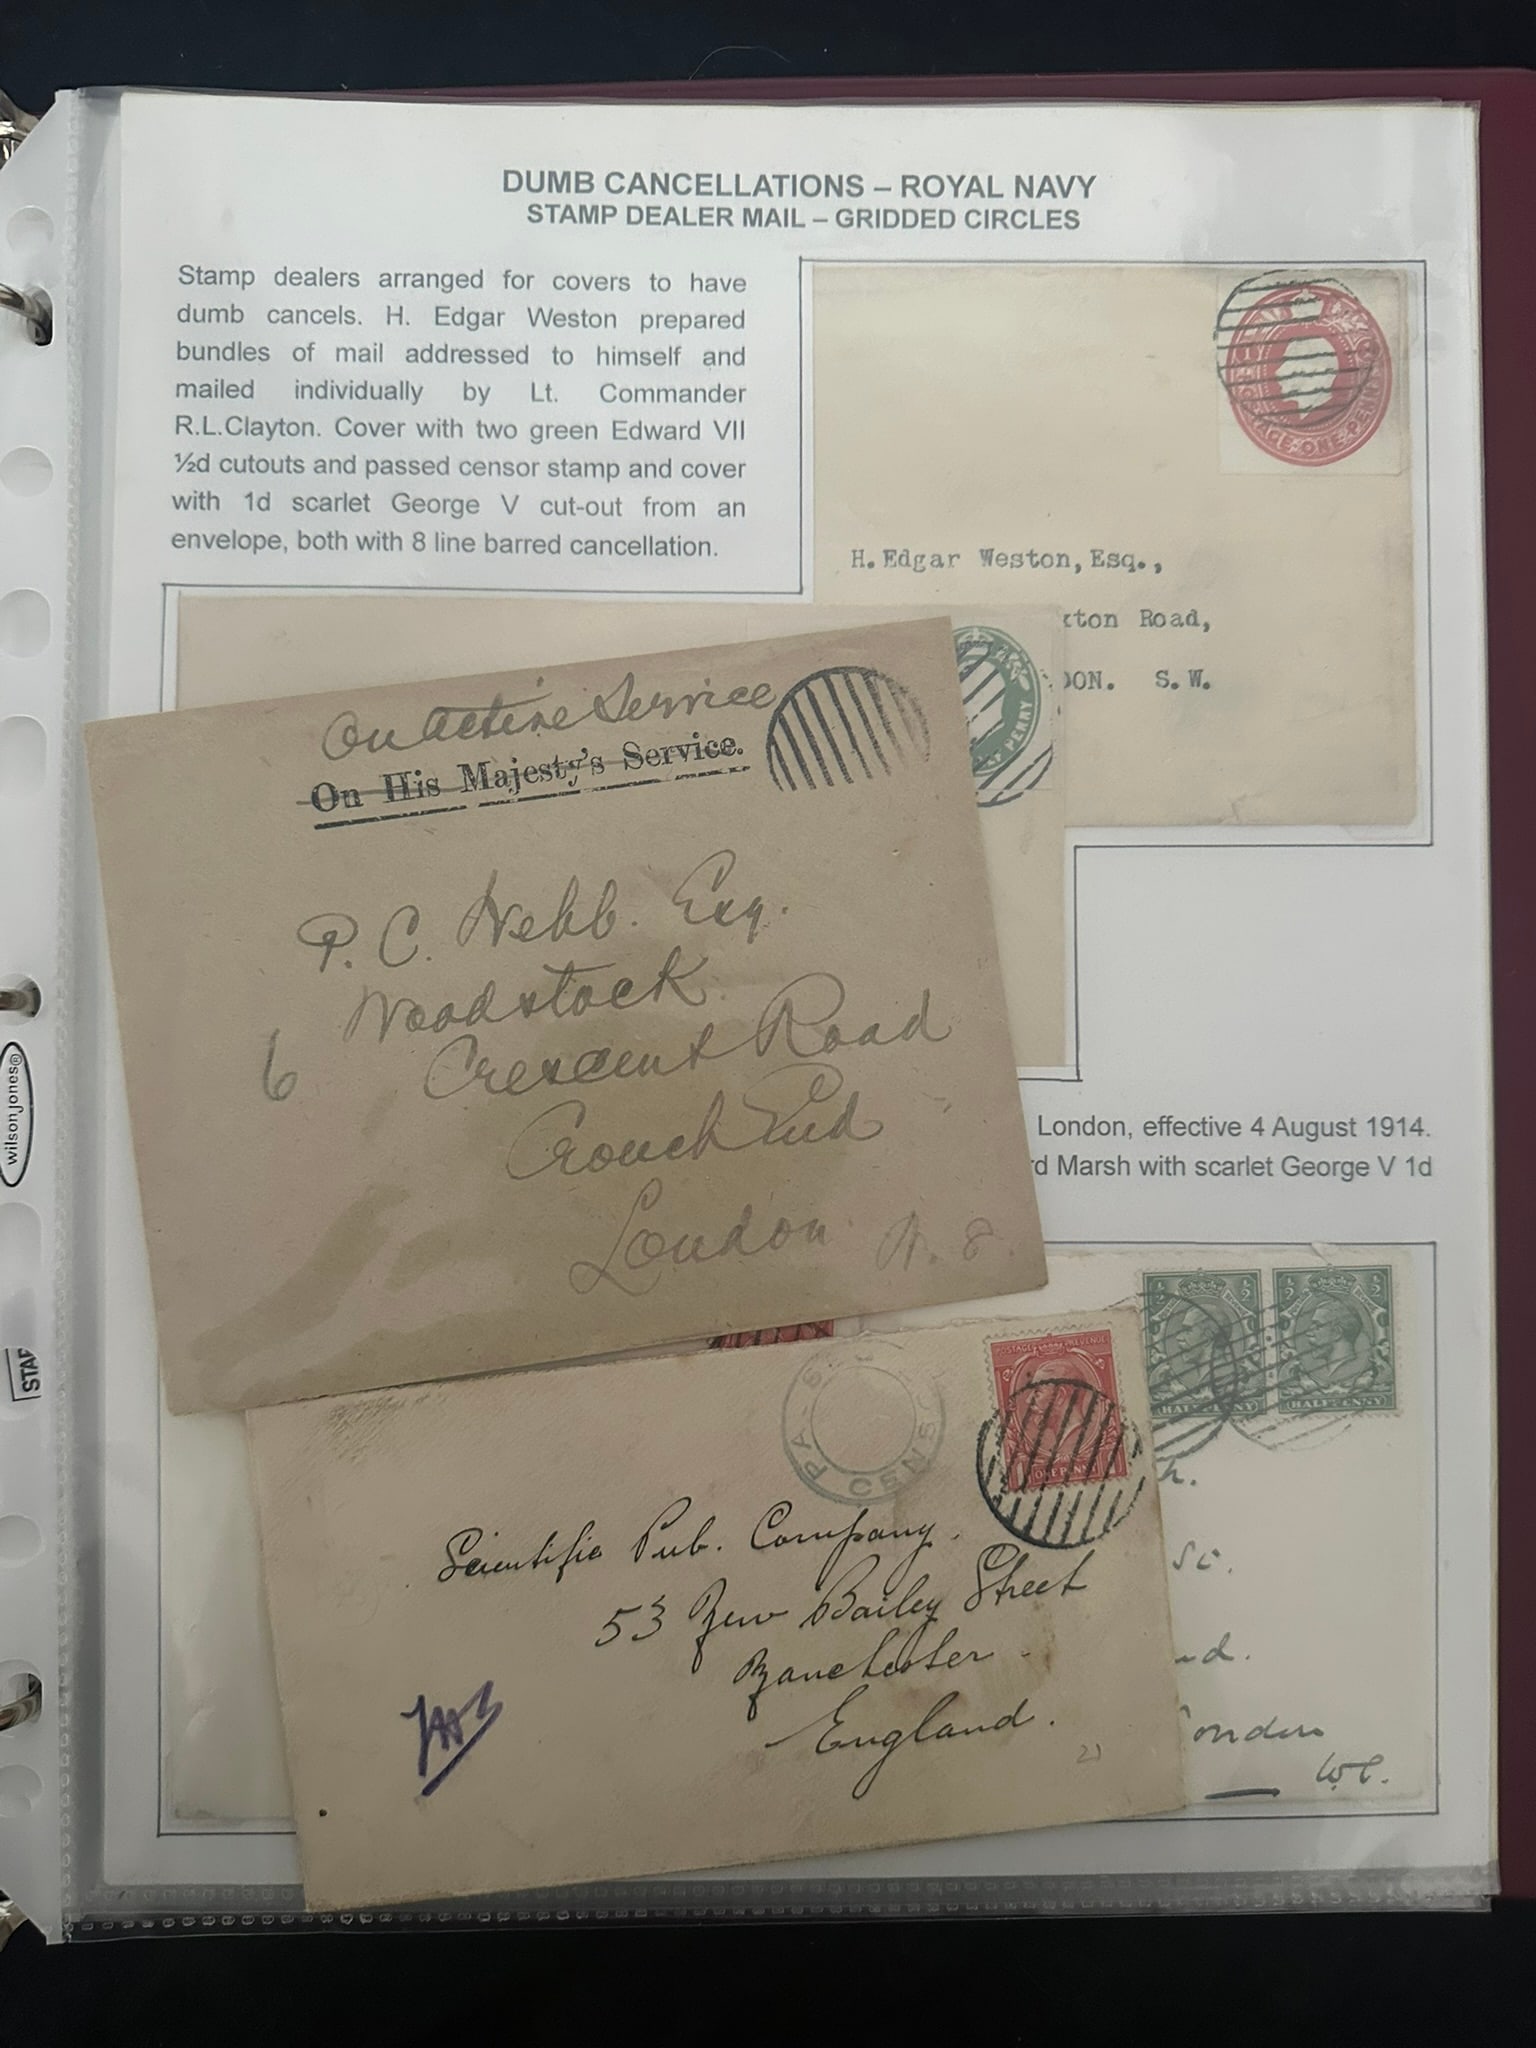 DUMB CANCELLATIONS – ROYAL NAVY
STAMP DEALER MAIL – GRIDDED CIRCLES
Stamp dealers arranged for covers to have
dumb cancels. H. Edgar Weston prepared
bundles of mail addressed to himself and
mailed individually by Lt. Commander
R.L.Clayton. Cover with two green Edward VII
½d cutouts and passed censor stamp and cover
with 1d scarlet George V cut-out from an
envelope, both with 8 line barred cancellation.
H.Edgar Weston, Esq.,
xton Road,
DON. S.W.
PENNY
On Active Service
On His Majesty's Service.
P. C. Webb. Esq.
Woodstock
6 Crescent Road
Crouch End
London N. 8.
London, effective 4 August 1914.
rd Marsh with scarlet George V 1d
½ ½ ½ ½
HALFPENNY HALFPENNY
POSTAGE REVENUE
1 ONE PENNY 1
PA S
CENSO
Scientific Pub. Company.
53 New Bailey Street
Manchester.
England.
h.
St.
nd.
London
W.C.
21
wilsonjones®
STAP